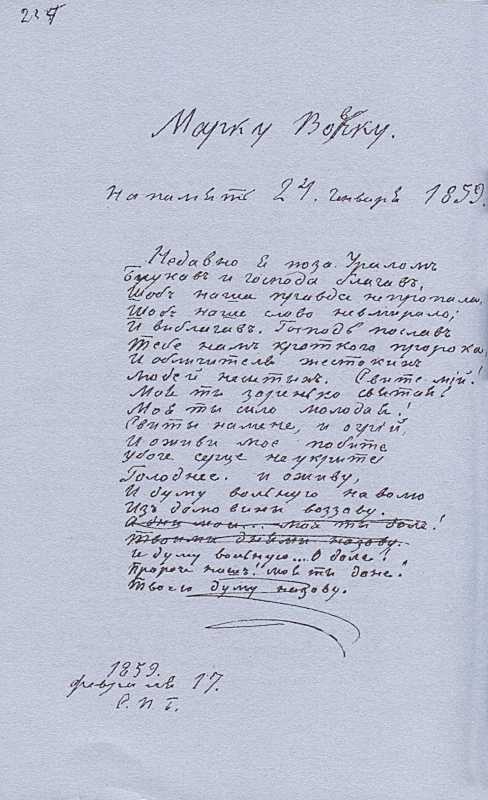 Марку Вовчку.
На память 24. Генваря 1859.
Недавно я поза Ураломъ
Блукавъ и Господа благавъ,
Щобъ наша правда не пропала,
Щобъ наше слово невмирало;
И виблагавъ. Господь пославъ
Тебе намъ кроткого пророка,
И обличителя жестокихъ
Людей неситыхъ. Свите мій!
Моя ти зоренько святая!
Моя ти сило молодая!
Свиты намене, и огрій,
И оживи мое побите
Убоге серце неукрите
Голоднее. и оживу,
И думу вольную на волю
Изъ домовини воззову.
И думу вольную... О доле!
Пророче нашъ! моя ти доне!
Твоею думу назову.
1859.
февраля 17.
С. П. Г.